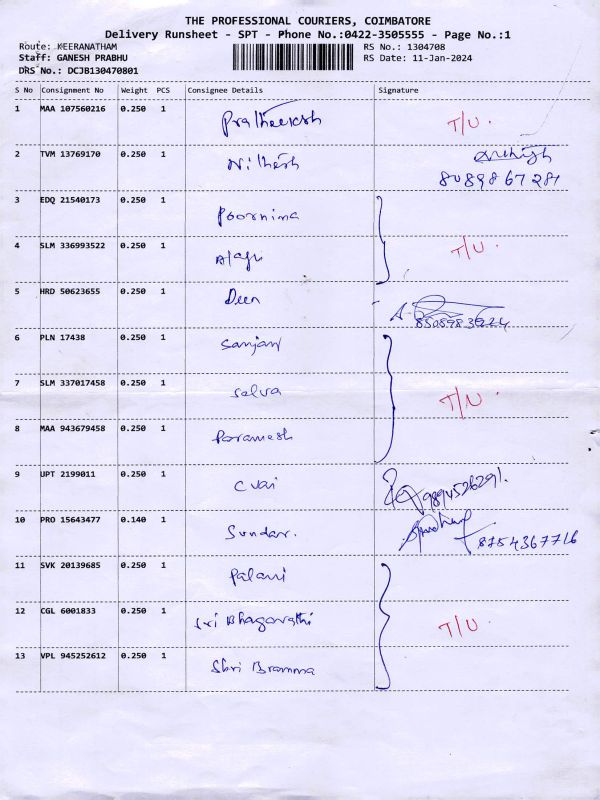 THE PROFESSIONAL COURIERS, COIMBATORE
Delivery Runsheet - SPT - Phone No.:0422-3505555 - Page No.:1
Route: KEERANATHAM
RS No.: 1304708
Staff: GANESH PRABHU
RS Date: 11-Jan-2024
DRS No.: DCJB130470801
S No Consignment No Weight PCS Consignee Details Signature
1 MAA 107560216 0.250 1 Pratheeksh T/U.
2 TVM 13769170 0.250 1 Nithesh
8089867281
3 EDQ 21540173 0.250 1 Poornima
4 SLM 336993522 0.250 1 T/U.
5 HRD 50623655 0.250 1 Deen
6 PLN 17438 0.250 1 Sanjay
7 SLM 337017458 0.250 1 Selva T/U.
8 MAA 943679458 0.250 1 Paramesh
9 UPT 2199011 0.250 1 9894526291.
10 PRO 15643477 0.140 1 Sundar. 8754367716
11 SVK 20139685 0.250 1 Palani
12 CGL 6001833 0.250 1 Sri Bhagavathi T/U.
13 VPL 945252612 0.250 1 Shri Bramma